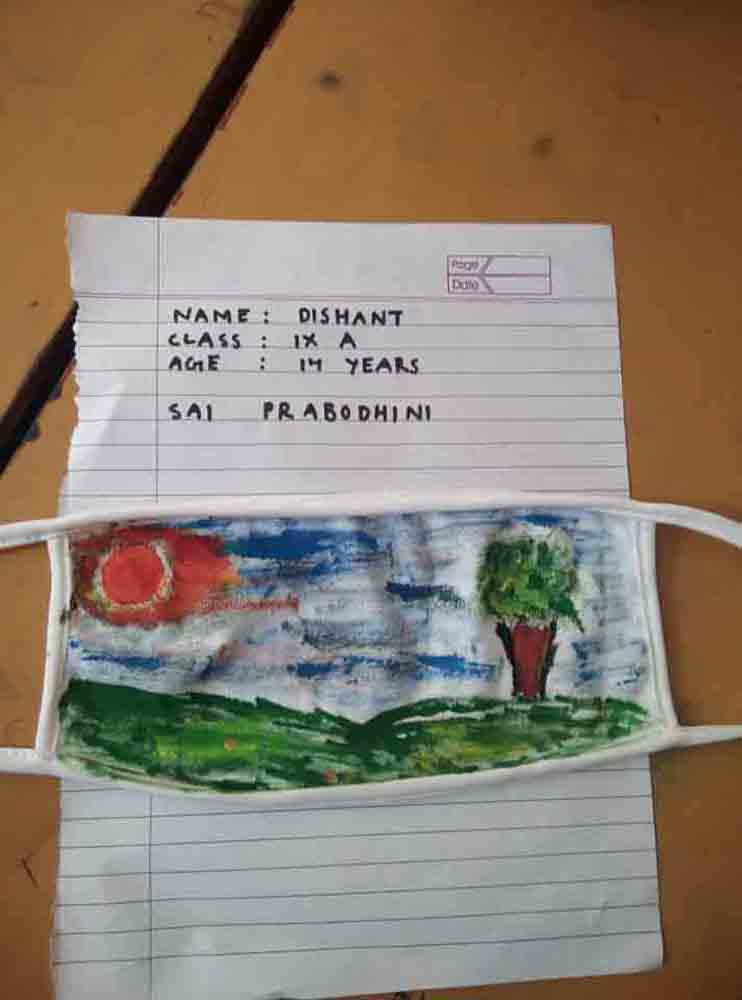 Page
Date
NAME : DISHANT
CLASS : IX A
AGE : 14 YEARS
SAI PRABODHINI